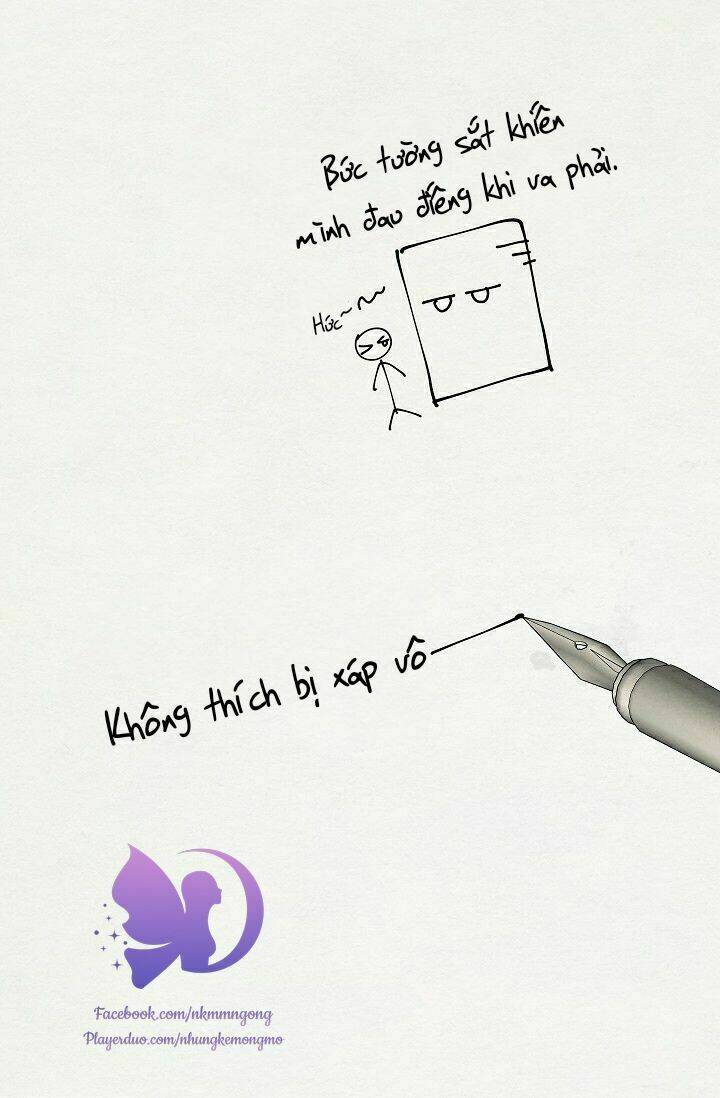 Bức tường sắt khiến
mình đau điếng khi va phải.
Hức~
Không thích bị xáp vô
Facebook.com/nkmmngong
Playerduo.com/nhungkemongmo